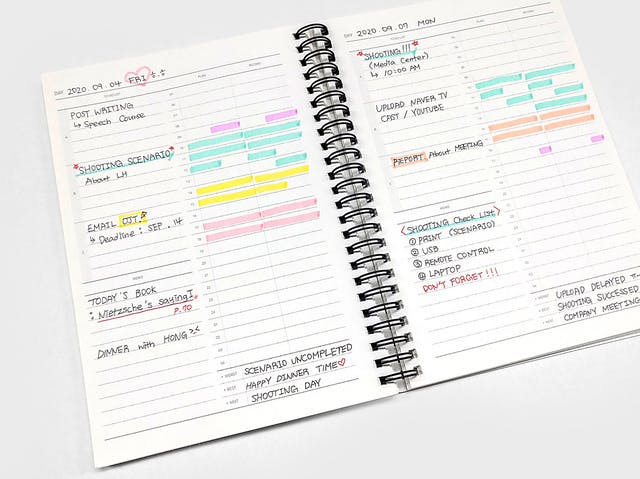 DAY 2020. 09. 04 FRI
TO DO LIST
PLAN
RECORD
POST WRITING
↳ Speech Course
*SHOOTING SCENARIO*
About LH
EMAIL OJT.
↳ Deadline : SEP. 14
MEMO
TODAY'S BOOK
: Nietzsche's saying I.
P.70
DINNER with HONG ><
• WORST SCENARIO UNCOMPLETED
• BEST HAPPY DINNER TIME♡
• NEXT SHOOTING DAY
DAY 2020. 09. 07 MON
TO DO LIST
PLAN
RECORD
*SHOOTING!!!*
(Media Center)
↳ 10:00 AM
UPLOAD NAVER TV
CAST / YOUTUBE
REPORT About MEETING
MEMO
<SHOOTING Check List>
① PRINT (SCENARIO)
② USB
③ REMOTE CONTROL
④ LAPTOP
DON'T FORGET!!!
• WORST UPLOAD DELAYED
• BEST SHOOTING SUCCESSED
• NEXT COMPANY MEETING